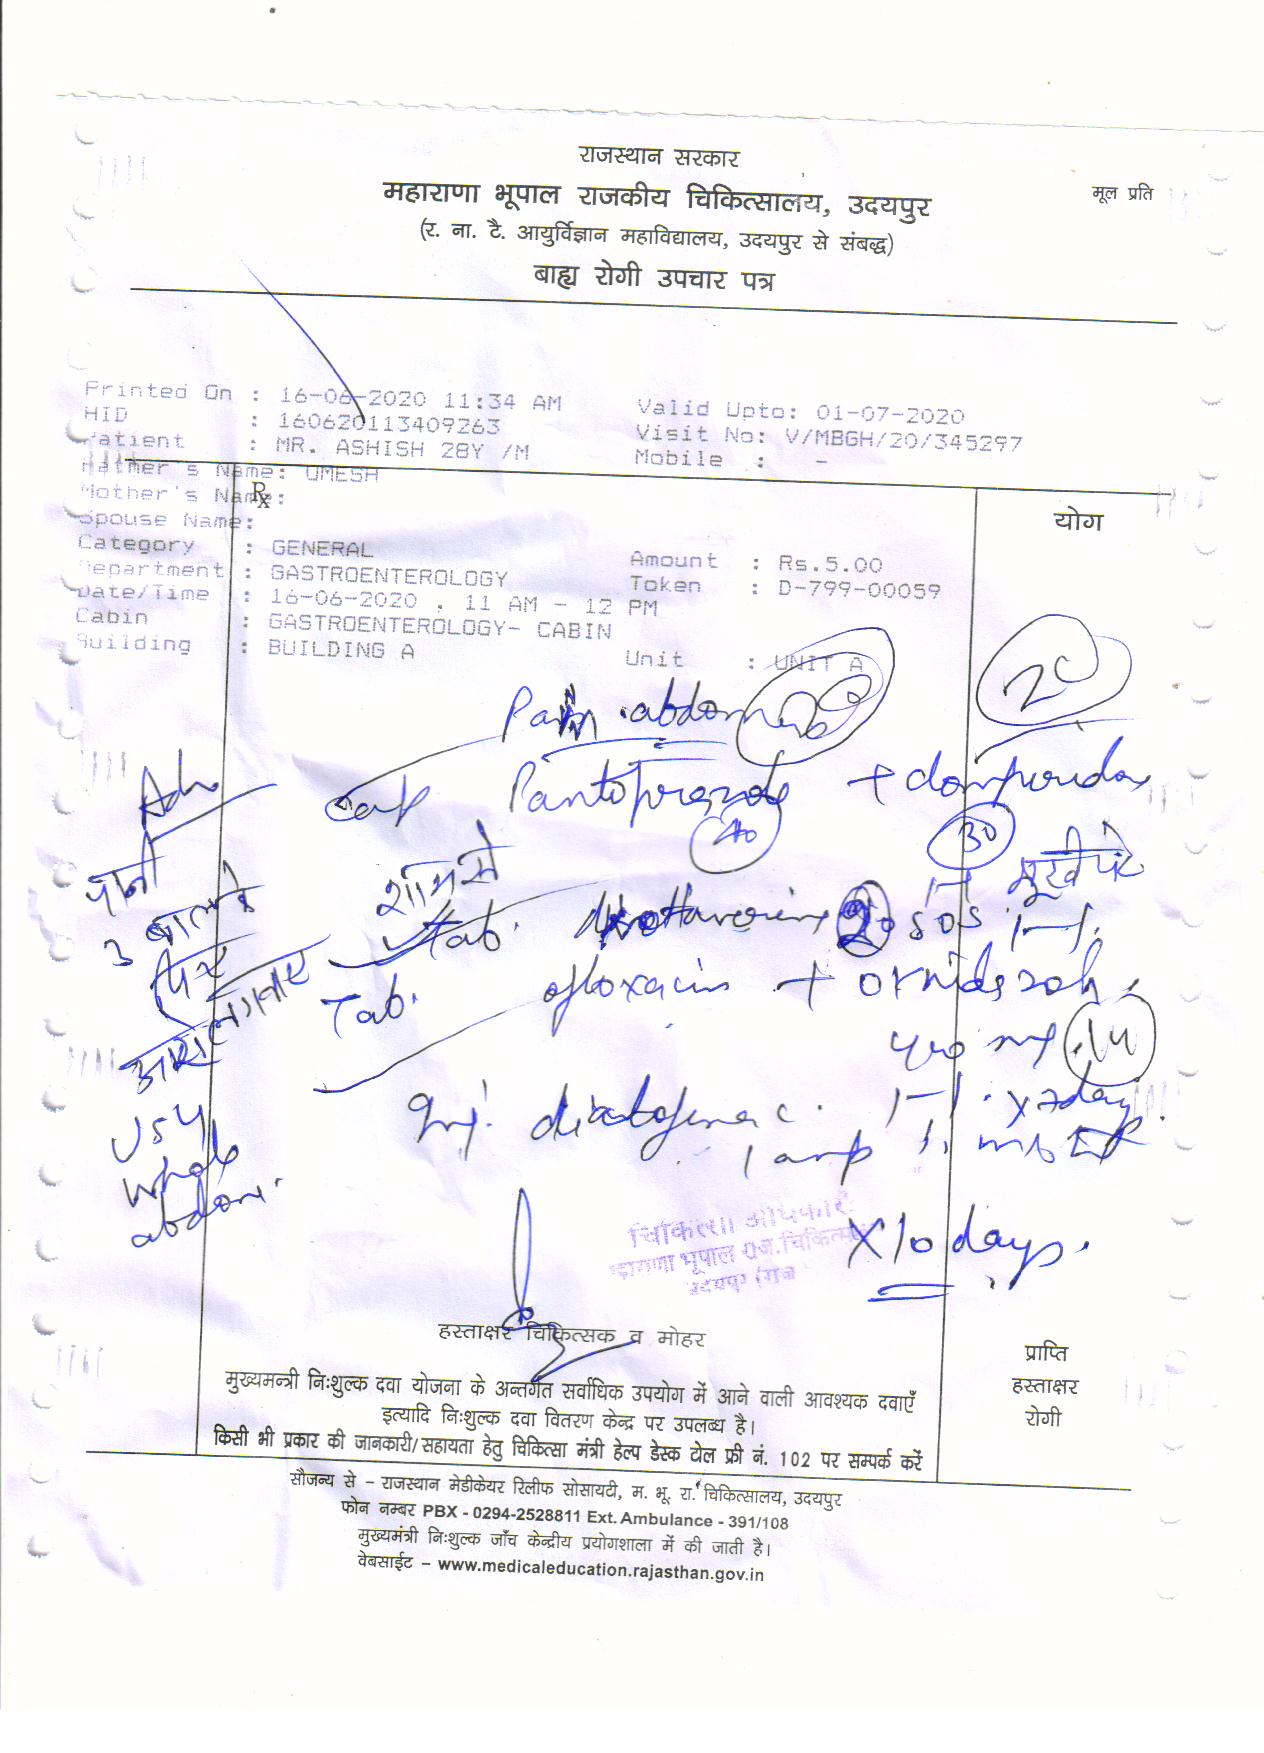 राजस्थान सरकार
महाराणा भूपाल राजकीय चिकित्सालय, उदयपुर
मूल प्रति
(र. ना. टै. आयुर्विज्ञान महाविद्यालय, उदयपुर से संबद्ध)
बाह्य रोगी उपचार पत्र
Printed On : 16-06-2020 11:34 AM Valid Upto: 01-07-2020
HID : 160620113409263 Visit No: V/MBGH/20/345297
Patient : MR. ASHISH 28Y /M Mobile : -
Father's Name: UMESH
Mother's Name:
Rx
योग
Spouse Name:
Category : GENERAL Amount : Rs.5.00
Department : GASTROENTEROLOGY Token : D-799-00059
Date/Time : 16-06-2020 , 11 AM - 12 PM
Cabin : GASTROENTEROLOGY- CABIN
Building : BUILDING A Unit : UNIT A
Pain abdomen
Adv Cap Pantoprazole + domperidone
40 30
पानी
1-1
शाम से
Tab. drotaverine sos 1-1.
Tab. ofloxacin + ornidazole
400 mg 14
Inj. diclofenac. 1-1. x7days
1 amp
USG
whole
abdom.
x10 days.
चिकित्सा अधिकारी
महाराणा भूपाल राज.चिकित्सालय
उदयपुर (राज
हस्ताक्षर चिकित्सक व मोहर
प्राप्ति
हस्ताक्षर
रोगी
मुख्यमन्त्री निःशुल्क दवा योजना के अन्तर्गत सर्वाधिक उपयोग में आने वाली आवश्यक दवाएँ
इत्यादि निःशुल्क दवा वितरण केन्द्र पर उपलब्ध है।
किसी भी प्रकार की जानकारी/सहायता हेतु चिकित्सा मंत्री हेल्प डेस्क टोल फ्री नं. 102 पर सम्पर्क करें
सौजन्य से – राजस्थान मेडीकेयर रिलीफ सोसायटी, म. भू. रा. चिकित्सालय, उदयपुर
फोन नम्बर PBX - 0294-2528811 Ext. Ambulance - 391/108
मुख्यमंत्री निःशुल्क जाँच केन्द्रीय प्रयोगशाला में की जाती है।
वेबसाईट – www.medicaleducation.rajasthan.gov.in